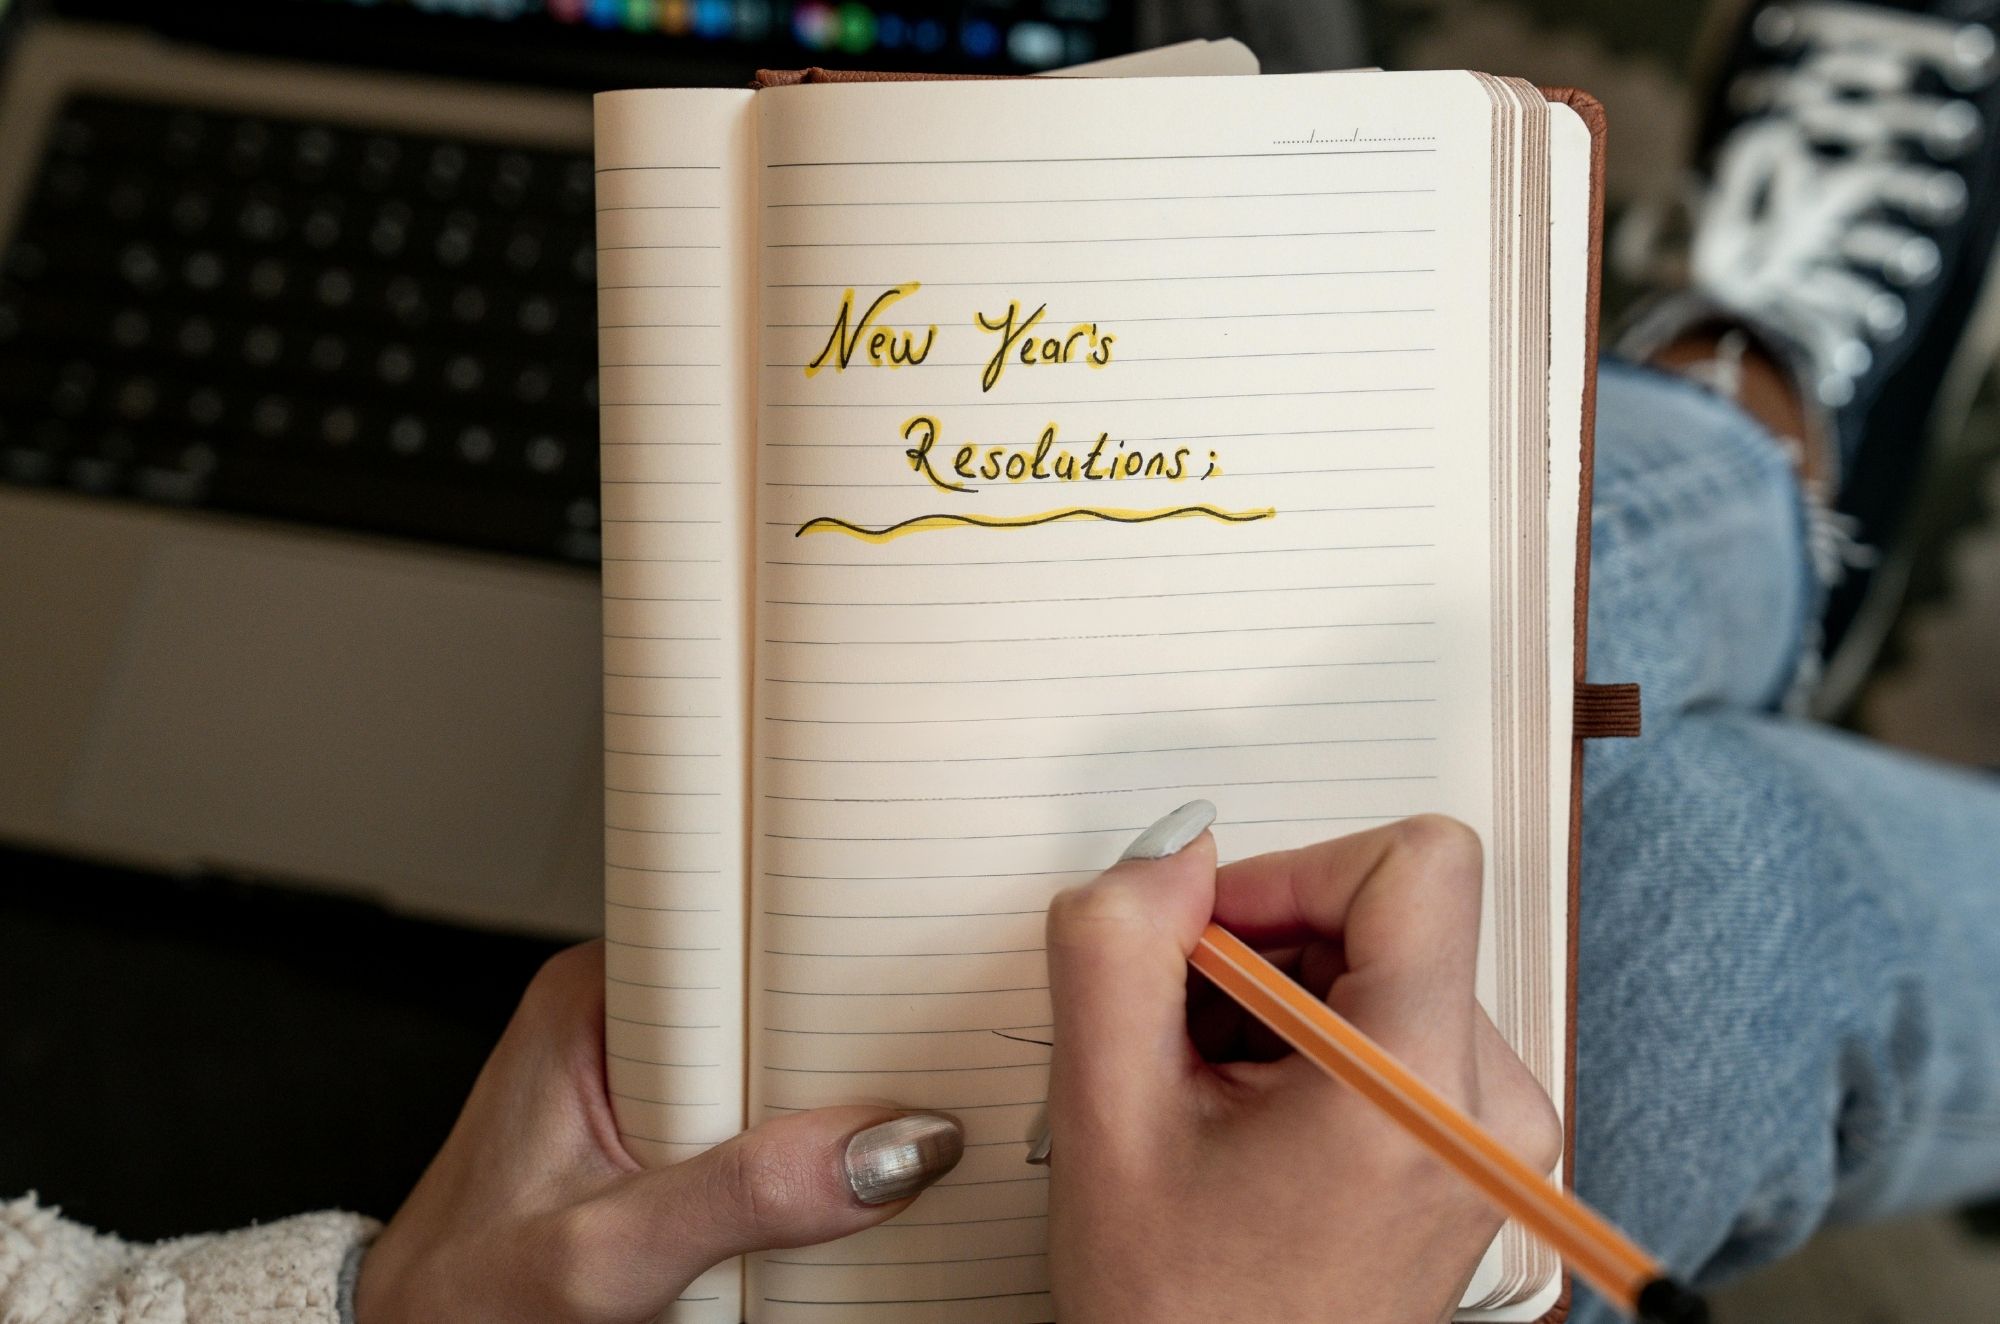 New Year's
Resolutions;